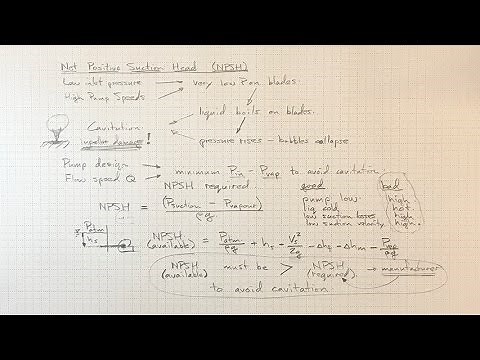 Net Positive Suction Head (NPSH)
Low inlet pressure
High Pump Speeds
very low P on blades.
liquid boils on blades.
Cavitation
impeller damage!
pressure rises - bubbles collapse
Pump design
Flow speed Q
minimum Pin - Pvap to avoid cavitation
NPSH required
NPSH = (Psuction - Pvapour) / ρg
good bad
pump low high
liq cold hot
low suction losses high
low suction velocity high
Patm
hs
NPSH (available) = Patm/ρg + hs - Vs²/2g - Δhf - Δhm - Pvap/ρg
NPSH (available) must be > NPSH (required) → manufacturer
to avoid cavitation